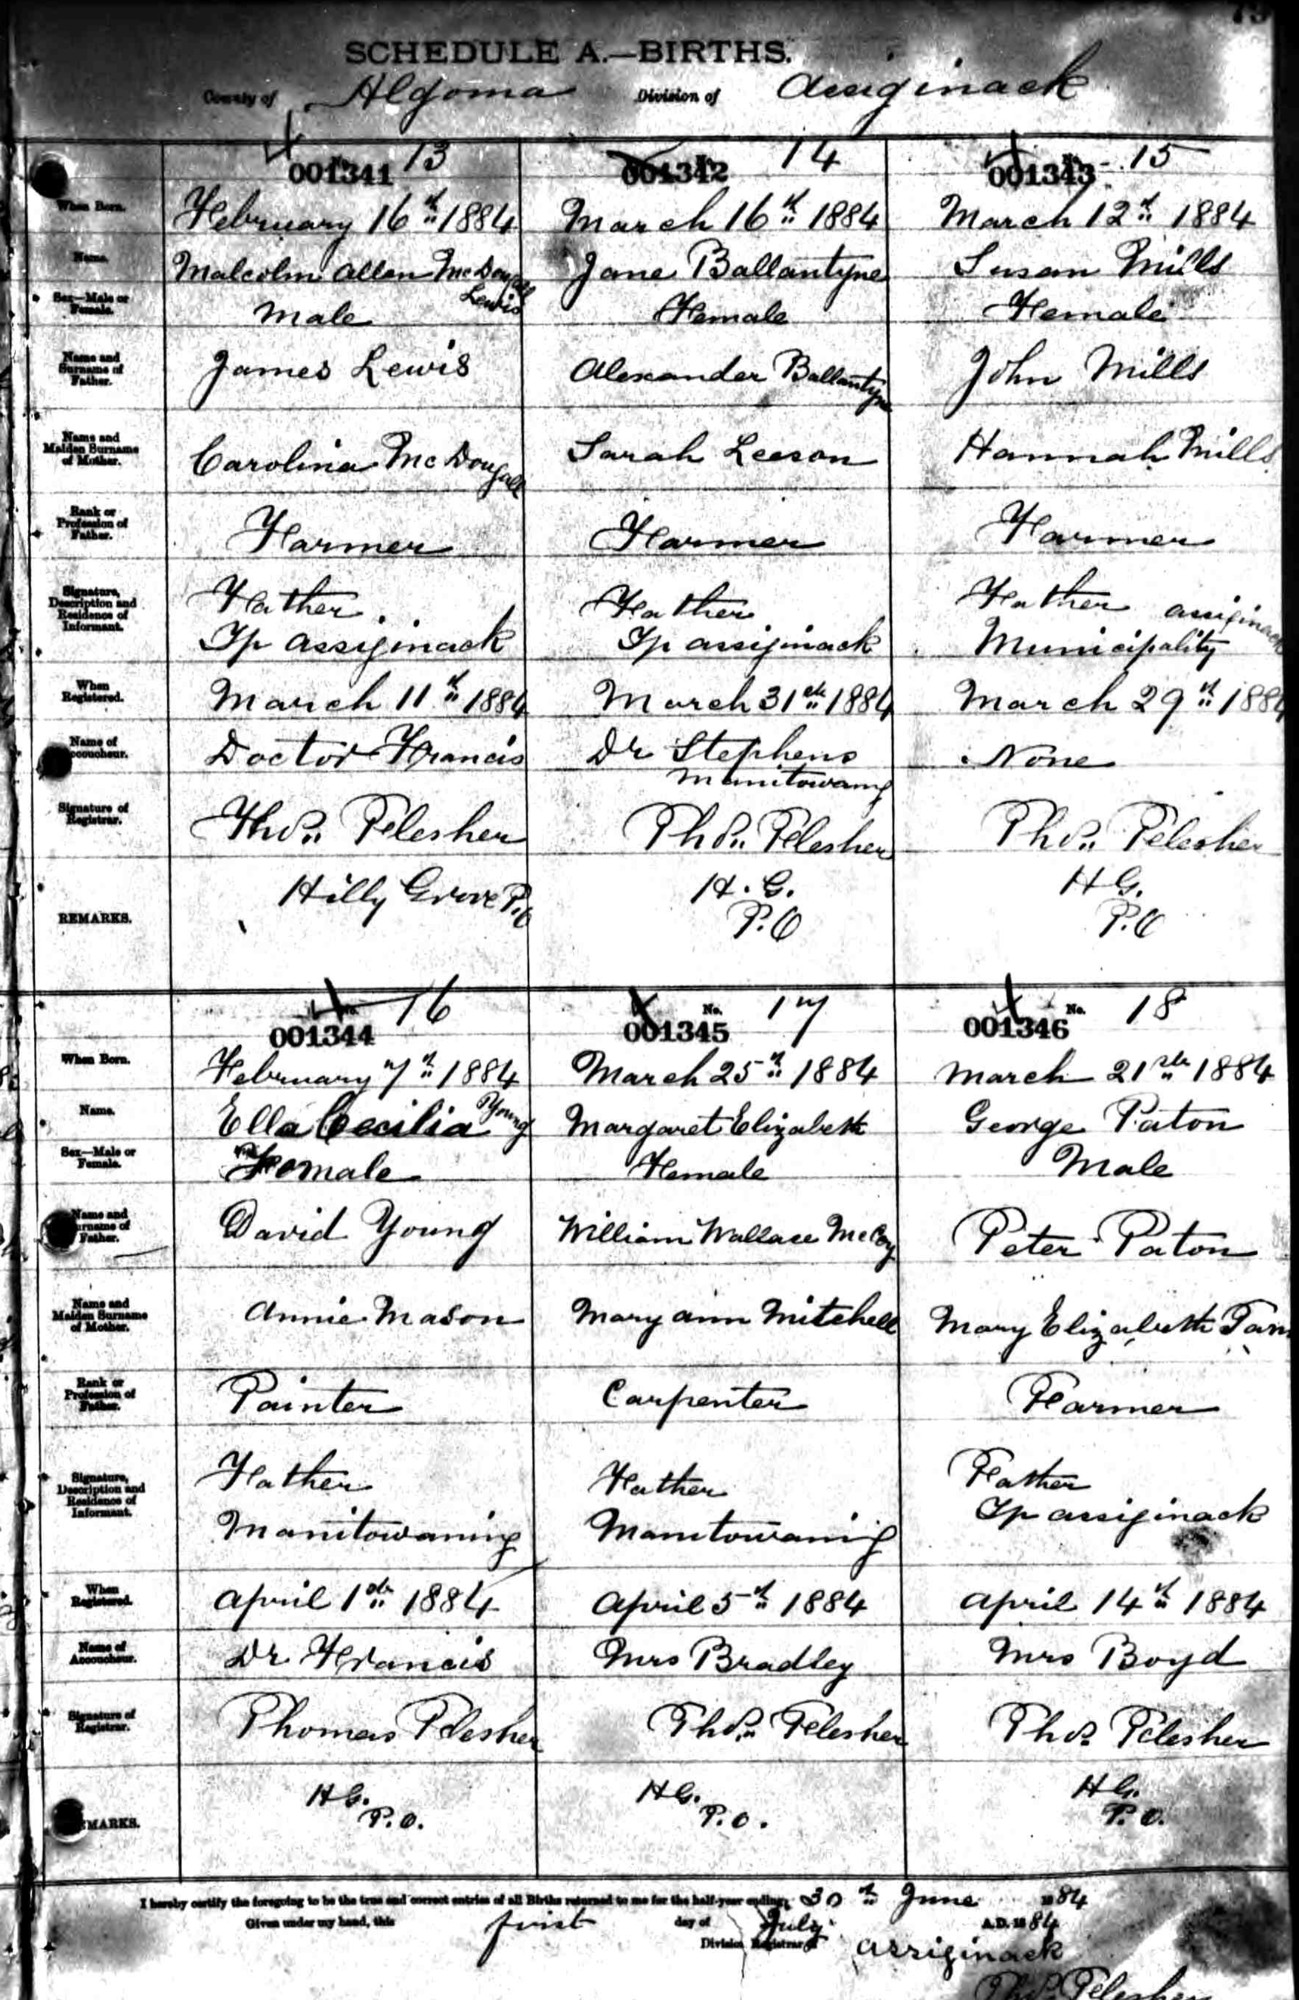 SCHEDULE A.—BIRTHS.
County of Algoma Division of Assiginack
No. 001341 13
No. 001342 14
No. 001343 15
When Born. February 16th 1884 March 16th 1884 March 12th 1884
Name. Malcolm Allan McDougall Lewis Jane Ballantyne Susan Mills
Sex—Male or Female. Male Female Female
Name and Surname of Father. James Lewis Alexander Ballantyne John Mills
Name and Maiden Surname of Mother. Carolina McDougall Sarah Leeson Hannah Mills
Rank or Profession of Father. Farmer Farmer Farmer
Signature, Description and Residence of Informant. Father Tp Assiginack Father Tp Assiginack Father Assiginack Municipality
When Registered. March 11th 1884 March 31st 1884 March 29th 1884
Name of Accoucheur. Doctor Francis Dr Stephens Manitowaning None
Signature of Registrar. Thos. Pelesher Thos. Pelesher Thos. Pelesher
REMARKS. Hilly Grove P.O H.G. P.O H G. P.O
No. 001344 16
No. 001345 17
No. 001346 18
When Born. February 7th 1884 March 25th 1884 March 21st 1884
Name. Ella Cecilia Young Margaret Elizabeth George Paton
Sex—Male or Female. Female Female Male
Name and Surname of Father. David Young William Wallace McCoy Peter Paton
Name and Maiden Surname of Mother. Annie Mason Mary Ann Mitchell Mary Elizabeth
Rank or Profession of Father. Painter Carpenter Farmer
Signature, Description and Residence of Informant. Father Manitowaning Father Manitowaning Father Tp Assiginack
When Registered. April 1st 1884 April 5th 1884 April 14th 1884
Name of Accoucheur. Dr Francis Mrs Bradley Mrs Boyd
Signature of Registrar. Thomas Pelesher Thos. Pelesher Thos. Pelesher
REMARKS. H G. P.O. H G. P.O. H G. P.O.
I hereby certify the foregoing to be the true and correct entries of all Births returned to me for the half-year ending 30th June 1884
Given under my hand, this first day of July A.D. 1884
Division Registrar of Assiginack
Thos. Pelesher